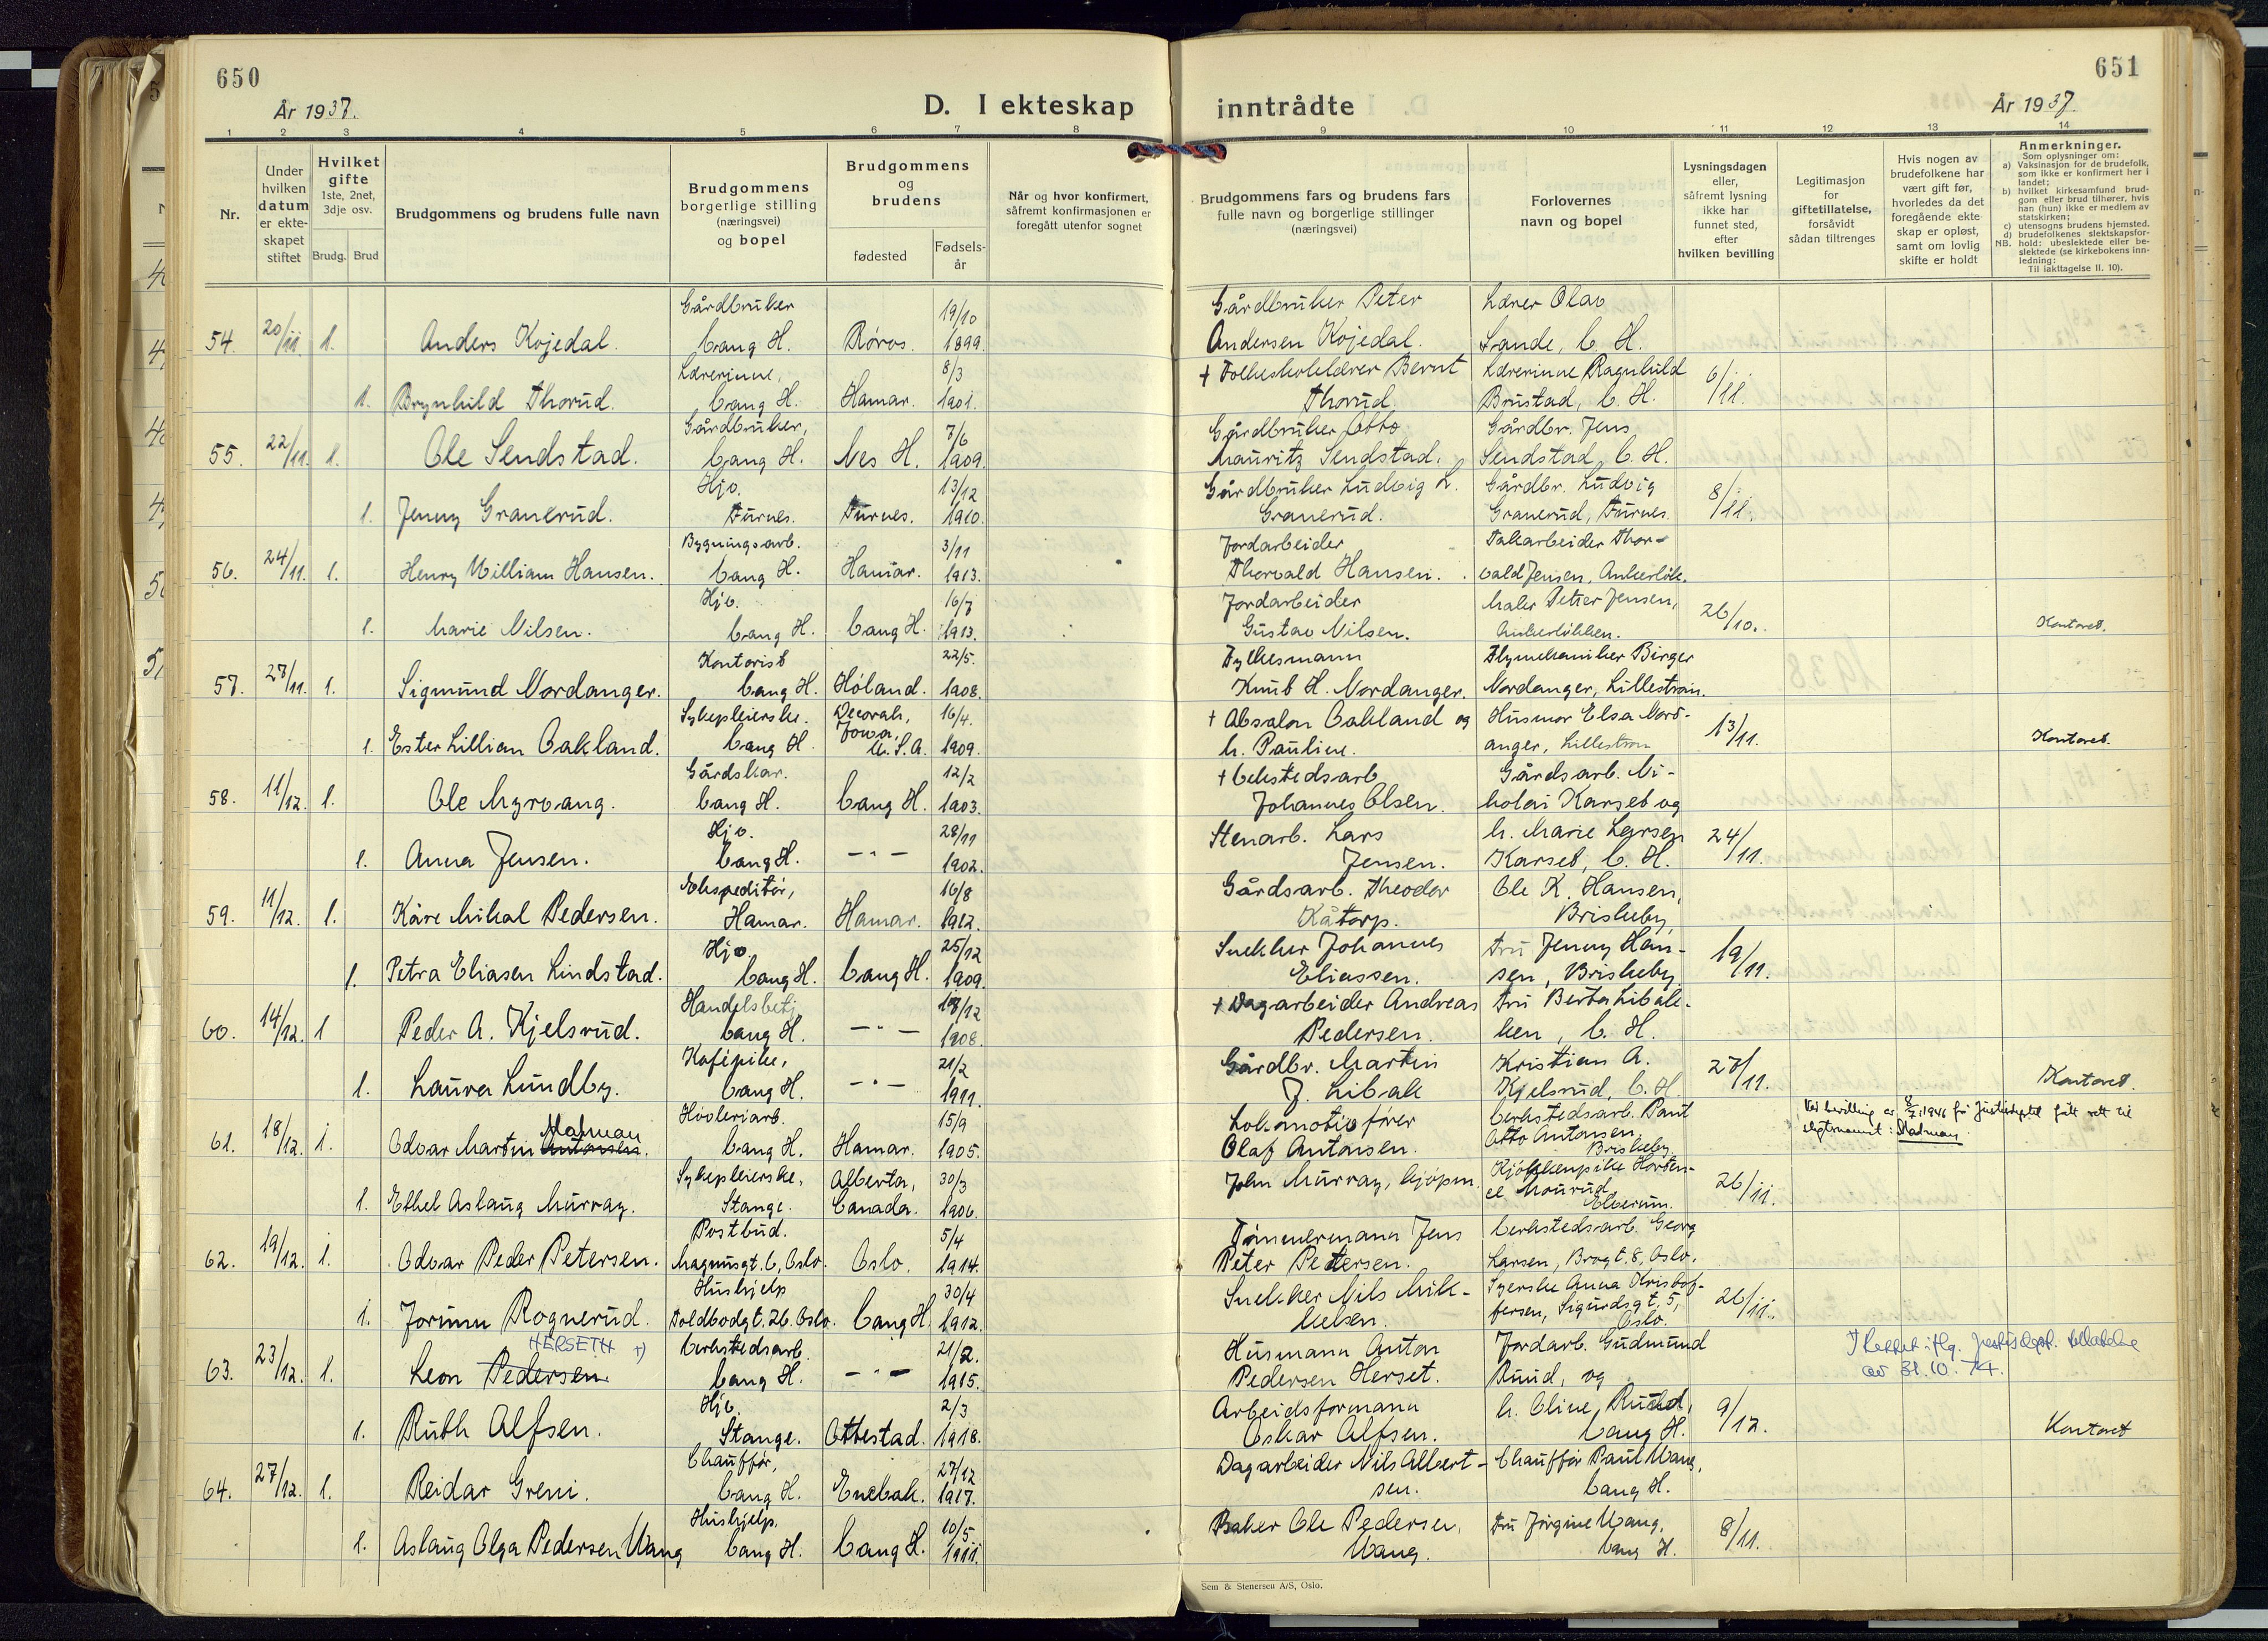 650
År 1937.
D. I ekteskap
inntrådte
År 1937.
651
1 2 3 4 5 6 7 8 9 10 11 12 13 14
Nr.
Under hvilken datum er ekteskapet stiftet
Hvilket gifte
1ste, 2net, 3dje osv.
Brudg. Brud
Brudgommens og brudens fulle navn
Brudgommens borgerlige stilling (næringsvei) og bopel
Brudgommens og brudens
fødested
Fødselsår
Når og hvor konfirmert, såfremt konfirmasjonen er foregått utenfor sognet
Brudgommens fars og brudens fars fulle navn og borgerlige stillinger (næringsvei)
Forlovernes navn og bopel
Lysningsdagen eller, såfremt lysning ikke har funnet sted, efter hvilken bevilling
Legitimasjon for giftetillatelse, forsåvidt sådan tiltrenges
Hvis nogen av brudefolkene har vært gift før, hvorledes da det foregående ekteskap er opløst, samt om lovlig skifte er holdt
Anmerkninger.
Som oplysninger om:
a) Vaksinasjon for de brudefolk, som ikke er konfirmert her i landet;
b) hvilket kirkesamfund brudgom eller brud tilhører, hvis han (hun) ikke er medlem av statskirken;
c) utensogns brudens hjemsted.
d) brudefolkenes slektskapsforhold: ubeslektede eller beslektede (se kirkebokens innledning:
NB.
Til iakttagelse II. 10).
54. 20/11 1. Anders Kojedal. Gårdbruker Vang H. Røros. 19/10 1899. Gårdbruker Peter Andersen Kojedal. Lærer Olav Sande, V. H.
1. Brynhild Thorud. Lærerinne, Vang H. Hamar. 8/3 1901. + Folkeskolelærer Bernt Thorud. Lærerinne Ragnhild Brustad, V. H. 6/11.
55. 22/11. 1. Ole Sendstad. Gårdbruker, Vang H. Nes H. 7/6 1909. Gårdbruker Otto Mauritz Sendstad. Gårdbr. Jens Sendstad, V. H.
1. Jenny Granerud. Hjv. Furnes. Furnes. 13/12 1910. Gårdbruker Ludvig L. Granerud. Gårdbr. Ludvig Granerud, Furnes. 8/11.
56. 24/11. 1. Henry William Hansen. Bygningsarb. Vang H. Hamar. 3/11 1913. Jordarbeider Thorvald Hansen. Takarbeider Thorvald Jensen, Ankerløk.
1. Marie Nilsen. Hjv. Vang H. Vang H. 16/7 1913. Jordarbeider Gustav Nilsen. Maler Petter Jensen, Ankerløkken. 26/10. Kontoret.
57. 27/11. 1. Sigmund Nordanger. Kontorist Vang H. Høland. 22/5. 1908. Fylkesmann Knut H. Nordanger. Flymekaniker Birger Nordanger, Lillestrøm.
1. Ester Lillian Oakland. Sykepleierske. Vang H. Decorah, Jowa, U. S. A. 16/4. 1909. + Absalon Oakland og h. Pauline. Husmor Elsa Nordanger, Lillestrøm 13/11. Kontoret.
58. 11/12. 1. Ole Myrvang. Gårdskar. Vang H. Vang H. 12/2 1903. + Verkstedsarb Johannes Olsen. Gårdsarb. Nikolai Karset og
1. Anna Jensen. Hjv. Vang H. — " — 28/11 1902. Stenarb. Lars Jensen. h. Marie Larsen Karset, V. H. 24/11.
59. 11/12. 1. Kåre Mikal Pedersen. Ekspeditør, Hamar. Hamar. 16/8 1912. Gårdsarb. Theodor Kåtorp. Ole K. Hansen, Briskeby,
1. Petra Eliasen Lindstad. Hjv Vang H. Vang H. 25/12 1909. Snekker Johannes Eliassen. Fru Jenny Hansen, Briskeby 19/11.
60. 14/12. 1 Peder A. Kjelsrud. Handelsbetj. Vang H. — " — 18/12 1908. + Dagarbeider Andreas Pedersen. Fru Berta Libakken, V. H.
1. Laura Lundby. Kafépike, Vang H. — " — 21/2 1911. Gårdbr. Martin J. Libak Kristian A. Kjelsrud, V. H. 27/11. Kontoret.
61. 18/12. 1. Odvar Martin Antonsen. Madman Høvleriarb. Vang H. Hamar. 15/9 1905. Lokomotivfører Olaf Antonsen. Verkstedsarb. Paul Otto Antonsen, Briskeby. Ved bevilling av 8/7.1946 fra Justisdeptet fått rett til slegtsnavnet: Madman
1. Ethel Aslaug Murray. Sykepleierske, Stange. Alberta, Canada. 30/3 1906. John Murray, kjøpm. Elverum. 26/11.
62. 19/12. 1. Odvar Peder Petersen. Postbud. Magnusgt. 6, Oslo. Oslo. 5/4 1914. Tømmermann Jens Peter Petersen. Verkstedsarb. Georg Larsen, Brogt. 8, Oslo.
1. Jorunn Rognerud. Hushjelp Toldbodgt. 26. Oslo. Vang H. 30/4 1912. Snekker Nils Mikkelsen. Syerske Anna Kristoffersen, Sigurdsgt. 5, Oslo. 26/11.
63. 23/12. 1. Leon Pedersen. HERSETH +) Verkstedsarb. Vang H. — " — 21/2. 1915. Husmann Anton Pedersen Herset. Jordarb. Gudmund Ruud, og av 31.10.74.
1. Ruth Alfsen. Hjv. Stange. Ottestad. 2/3 1918. Arbeidsformann Oskar Alfsen. h. Oline Ruud, Vang H. 9/12. Kontoret
64. 27/12. 1. Reidar Greni. Chauffør, Vang H. Enebak. 27/12 1917. Dagarbeider Nils Albertsen. Chauffør Paul Wang, Vang H.
1. Aslaug Olga Pedersen Wang Hushjelp. Vang H. Vang H. 10/5 1911. Baker Ole Pedersen, Wang. Fru Jørgine Wang, Vang H. 8/11.
Sem & Stenersen A/S, Oslo.